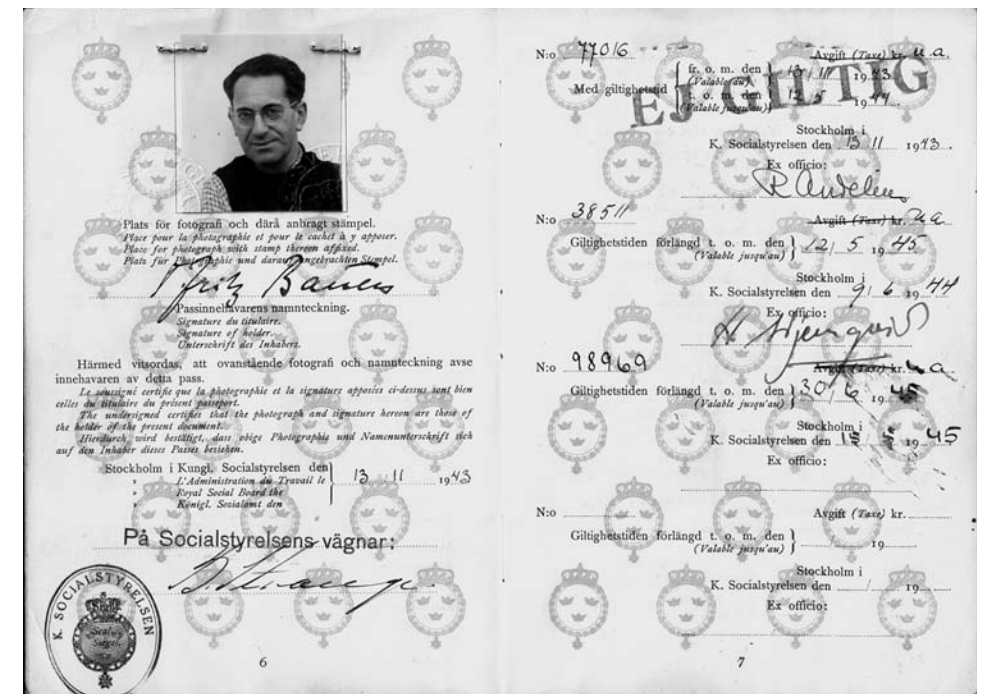 Plats för fotografi och därå anbragt stämpel.
Place pour la photographie et pour le cachet à y apposer.
Place for photograph with stamp thereon affixed.
Platz für Photographie und darauf angebrachten Stempel.
Fritz Bauer
Passinnehavarens namnteckning.
Signature du titulaire.
Signature of holder.
Unterschrift des Inhabers.
Härmed vitsordas, att ovanstående fotografi och namnteckning avse
innehavaren av detta pass.
Le soussigné certifie que la photographie et la signature apposées ci-dessus sont bien
celles du titulaire du présent passeport.
The undersigned certifies that the photograph and signature hereon are those of
the holder of the present document.
Hierdurch wird bestätigt, dass obige Photographie und Namenunterschrift sich
auf den Inhaber dieses Passes beziehen.
Stockholm i Kungl. Socialstyrelsen den
» L'Administration du Travail le 13 11 1943
» Royal Social Board the
» Königl. Sozialamt den
På Socialstyrelsens vägnar:
K. SOCIALSTYRELSEN
Sigel.
6
N:o 77016 Avgift (Taxe) kr. u.a.
EJ GILTIG
Med giltighetstid
fr. o. m. den 13/11 1943
(Valable du)
t. o. m. den 12/5 1944
(Valable jusqu'au)
Stockholm i
K. Socialstyrelsen den 13 11 1943.
Ex officio:
N:o 38511 Avgift (Taxe) kr. u a
Giltighetstiden förlängd t. o. m. den 12/5 1945
(Valable jusqu'au)
Stockholm i
K. Socialstyrelsen den 9/6 1944
Ex officio:
N:o 98969 Avgift (Taxe) kr. u a.
Giltighetstiden förlängd t. o. m. den 30/6 1945
(Valable jusqu'au)
Stockholm i
K. Socialstyrelsen den 15/5 1945
Ex officio:
N:o Avgift (Taxe) kr.
Giltighetstiden förlängd t. o. m. den / 19
(Valable jusqu'au)
Stockholm i
K. Socialstyrelsen den / 19
Ex officio:
7